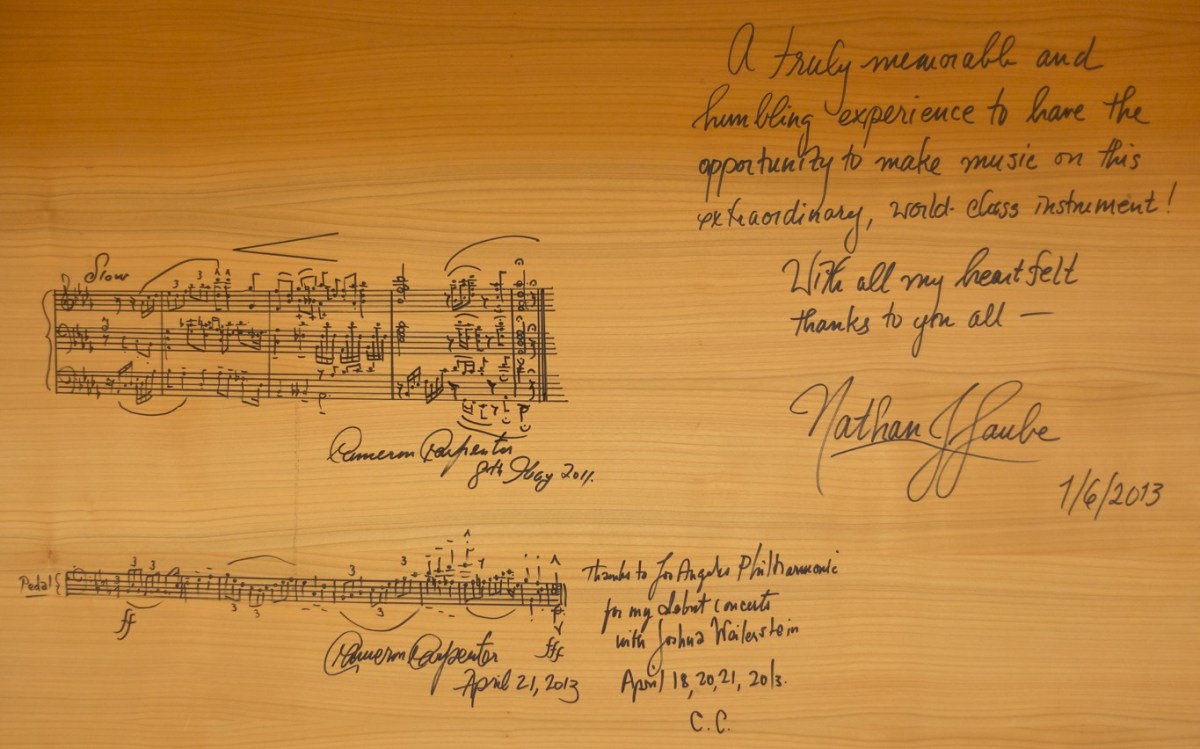 A truly memorable and
humbling experience to have the
opportunity to make music on this
extraordinary, world-class instrument!
With all my heartfelt
thanks to you all —
Nathan J Laube
1/6/2013
Slow
3
Cameron Carpenter
8th May 2011.
Pedal
3 3 3 3
3 3
ff
fff
Cameron Carpenter
April 21, 2013
Thanks to Los Angeles Philharmonic
for my debut concerts
with Joshua Weilerstein
April 18, 20, 21, 2013.
C.C.